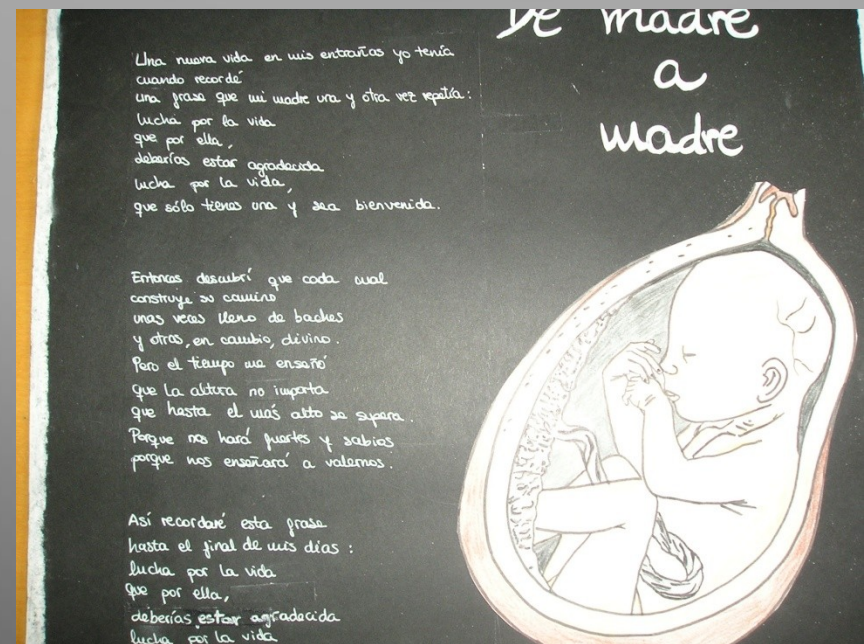 De madre
a
madre
Una nueva vida en mis entrañas yo tenía
cuando recordé
una frase que mi madre una y otra vez repetía:
lucha por la vida
que por ella,
deberías estar agradecida
lucha por la vida,
que sólo tienes una y sea bienvenida.
Entonces descubrí que cada cual
construye su camino
unas veces lleno de baches
y otras, en cambio, divino.
Pero el tiempo me enseñó
que la altura no importa
que hasta el más alto se supera.
Porque nos hará fuertes y sabios
porque nos enseñará a valernos.
Así recordaré esta frase
hasta el final de mis días:
lucha por la vida
que por ella,
deberías estar agradecida
lucha por la vida